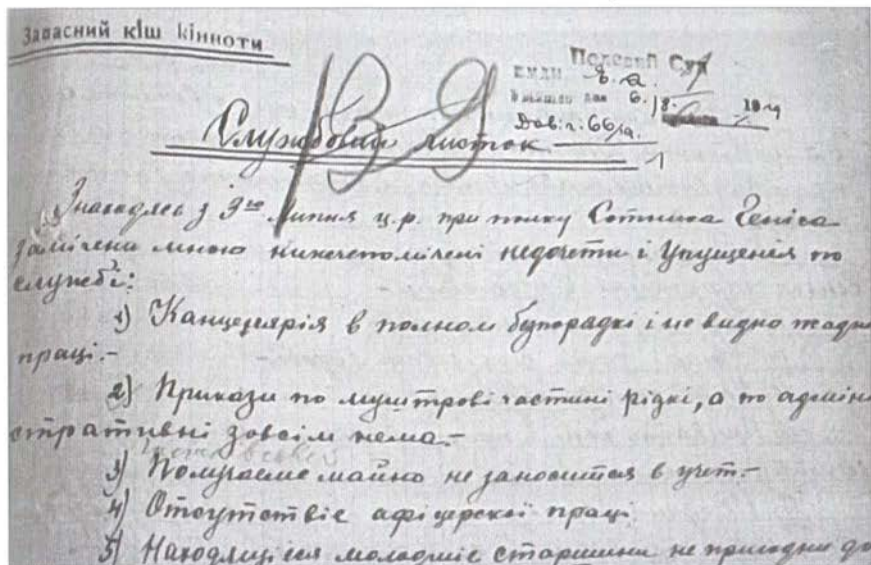 Запасний кіш кінноти
Полевий Суд
Службовий листок
Знаходясь з 9го липня ц.р. при полку Сотника Геніса
замічени мною нижчепомічені недочети і упущенія по
службі:
1) Канцелярія в полном безпорядкі і не видно жадно
праці.-
2) Прикази по муштрові частині рідкі, а по адміні
стративні зовсім нема.-
3) Получаеме майно не заносится в учет.-
4) Отсутствіє афіцерскої праці
5) Находящієся молодшіє старшини не пригодни до